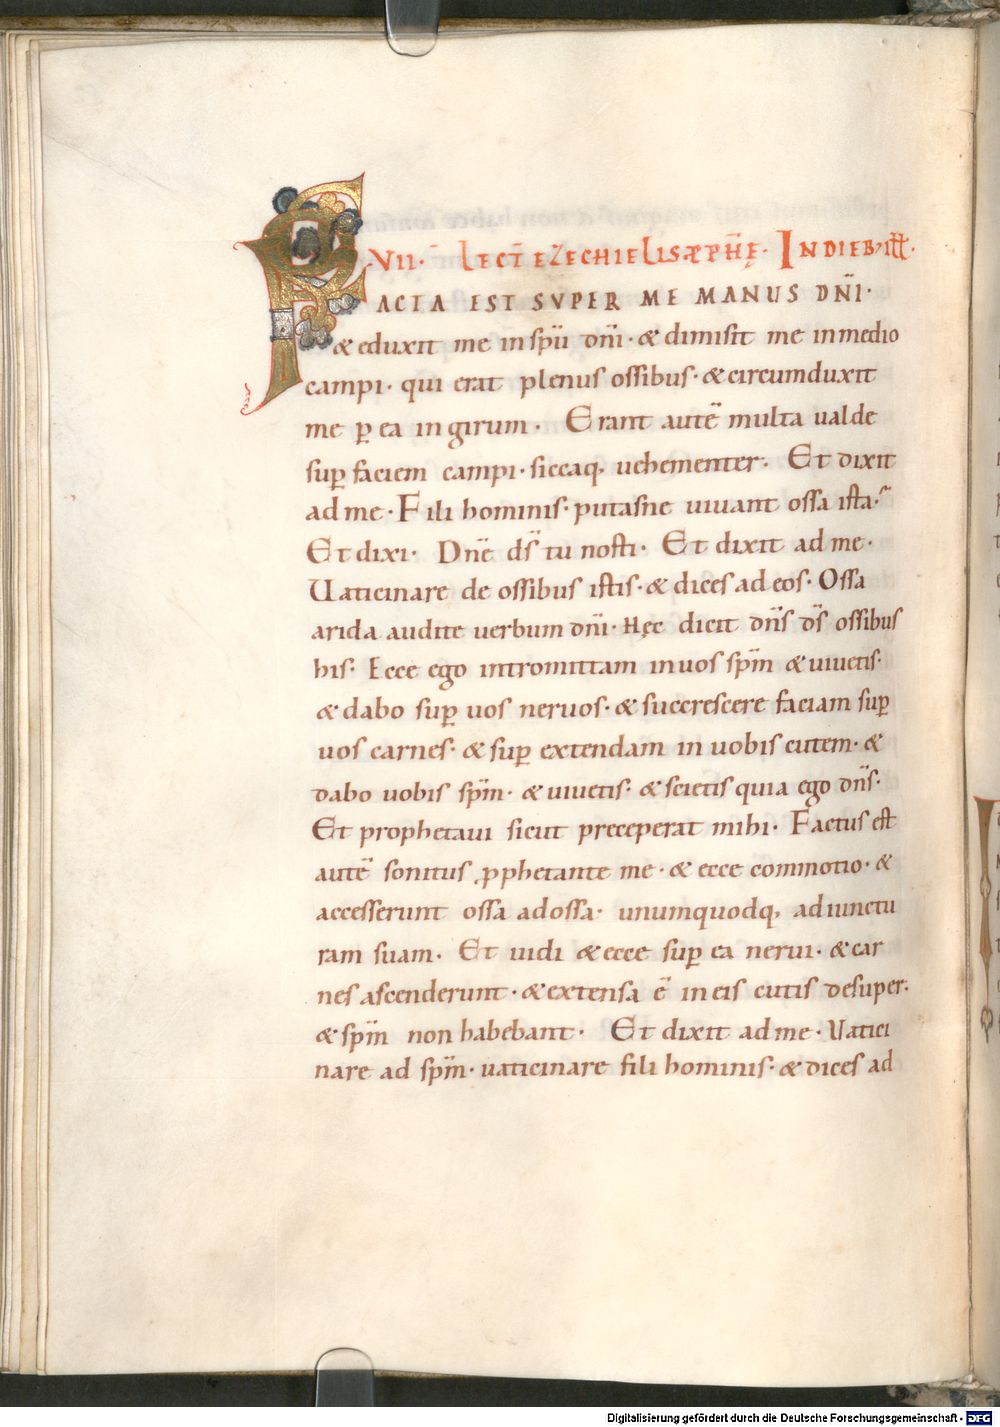 VII. LECT̄ EZECHIELIS ꝒPH̄Ę. IN DIEB; ILL̄.
FACTA EST SVPER ME MANUS DN̄I·
& eduxit me in sp̄u dn̄i· & dimisit me in medio
campi· qui erat plenus ossibus· & circumduxit
me ꝑ ea in girum· Erant autē multa ualde
suꝑ faciem campi· siccaq; uehementer· Et dixit
ad me· Fili hominis· putasne uiuant ossa ista·
Et dixi· Dn̄e ds̄ tu nosti· Et dixit ad me·
Uaticinare de ossibus istis· & dices ad eos· Ossa
arida audite uerbum dn̄i· Hęc dicit dn̄s ds̄ ossibus
his· Ecce ego intromittam in uos sp̄m & uiuetis·
& dabo suꝑ uos neruos· & succrescere faciam suꝑ
uos carnes· & suꝑ extendam in uobis cutem· &
dabo uobis sp̄m· & uiuetis· & scietis quia ego dn̄s·
Et prophetaui sicut preceperat mihi· Factus est
autē sonitus ꝓphetante me· & ecce commotio· &
accesserunt ossa ad ossa· unumquodq; ad iunctu
ram suam· Et uidi & ecce suꝑ ea nerui· & car
nes ascenderunt· & extensa ē in eis cutis desuper·
& sp̄m non habebant· Et dixit ad me· Uatici
nare ad sp̄m· uaticinare fili hominis· & dices ad
Digitalisierung gefördert durch die Deutsche Forschungsgemeinschaft - DFG